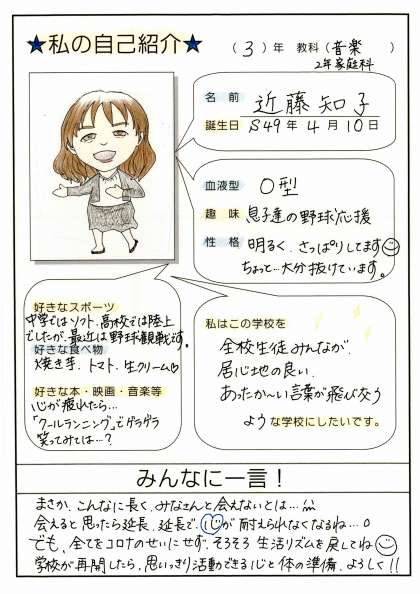 ★私の自己紹介★
(3)年 教科(音楽)
2年家庭科
名前 近藤 知子
誕生日 S49年4月10日
血液型 O型
趣味 息子達の野球応援
性格 明るく、さっぱりしてます
ちょっと…大分抜けています。
好きなスポーツ
中学ではソフト、高校では陸上
でしたが、最近は野球観戦です。
好きな食べ物
焼き芋、トマト、生クリーム♡
好きな本・映画・音楽等
心が疲れたら…
「クールランニング」でゲラゲラ
笑ってみては…?
私はこの学校を
全校生徒みんなが、
居心地の良い、
あったか〜い言葉が飛び交う
ような学校にしたいです。
みんなに一言!
まさか、こんなに長く、みなさんと会えないとは…
会えると思ったら延長、延長で、心が耐えられなくなるね…。
でも、全てをコロナのせいにせず、そろそろ生活リズムを戻してね
学校が再開したら、思いっきり活動できる心と体の準備、よろしく!!